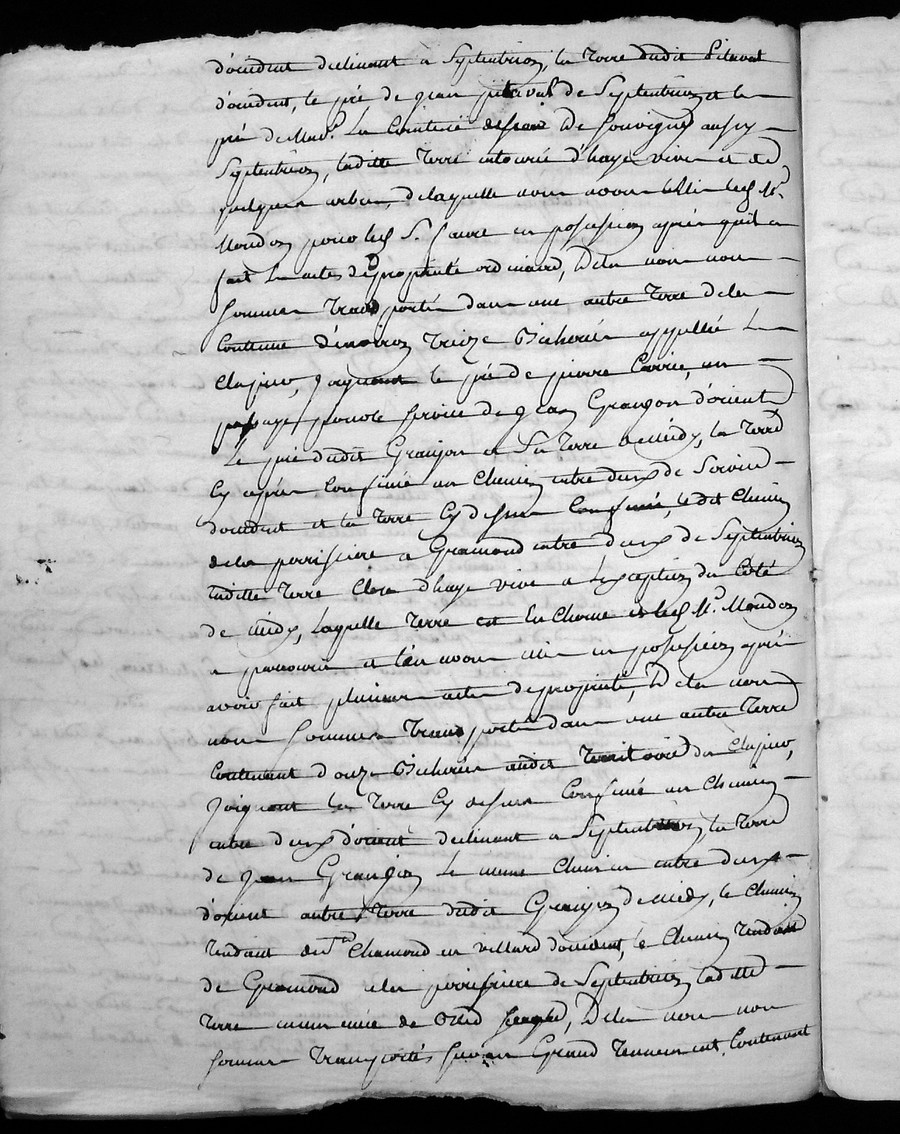 d'occident declinant a Septentrion, la Terre dudit Pitaval
d'occident, le pré de jean pitaval de Septentrion et le
pré de Mad.e La Comtesse de Souvigné aussy
Septentrion, laditte Terre entourée d'haye vive et de
quelques arbres, de laquelle nous avons led. M.r
Moudon pour led. S.r faure en possession après qu'il a
fait les actes de propriété ordinaires, De la nous nous
sommes Transportés dans une autre Terre de la
Contenue d'environ Treize Bicherées appellée Le
Clapier, joignant le pré de pierre Carrie, un
passage pour le service de jean Granjon d'orient
Le pré dudit Granjon et Sa Terre de midy, la Terre
Cy après Confinée un Chemin entre deux de
d'occident et la Terre Cy dessus Confinée, le dit Chemin
de la perrisiere a Gramond entre deux de Septentrion
laditte Terre Close d'haye vive a l'exception du Coté
de midy, laquelle Terre est En Chaume et led. M.r Moudon
a parcourue et l'en avons mis en possession après
avoir fait plusieurs actes de propriété, De la nous
nous sommes Transportés dans une autre Terre
Contenant douze Bicherées audit Territoire du Clapier,
Joignant la Terre Cy dessus Confinée un Chemin
entre deux d'orient declinant a Septentrion, la Terre
de jean Granjon Le meme Chemin entre deux
d'orient autre Terre dudit Granjon de midy, le Chemin
Tendant de St. Chamond en vellard d'occident, le Chemin Tendant
de Gramond a la perrisiere de Septentrion laditte
Terre ensemencée de Bled seigle, De la nous nous
sommes Transportés sur un Grand Tenement, Contenant